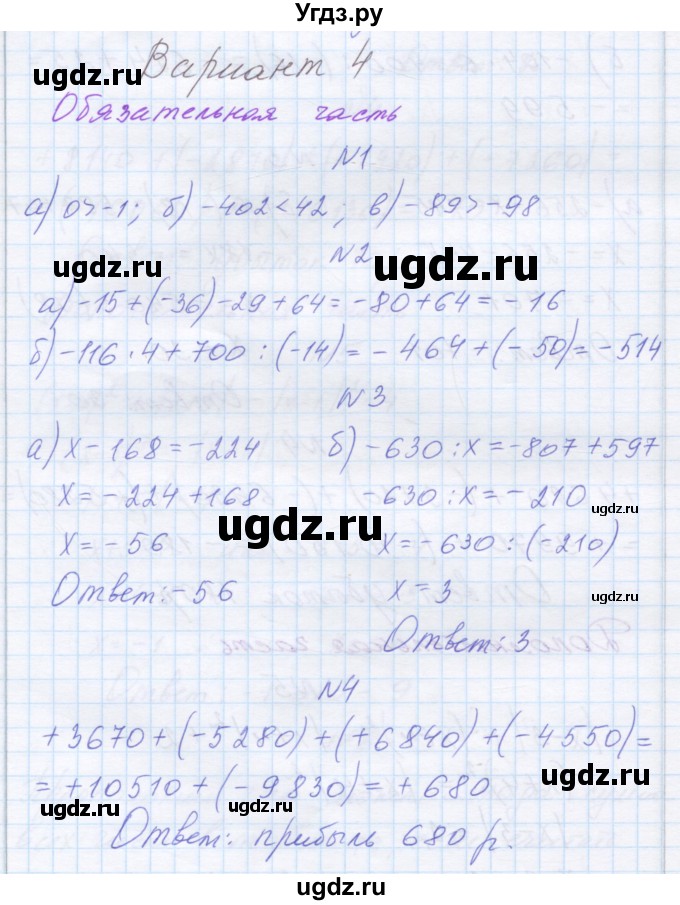 Угдз.ру
Вариант 4
Обязательная часть
N1
а) 0>-1; б) -402<42; в) -89>-98
N2
а) -15+(-36)-29+64=-80+64=-16
б) -116·4+700:(-14)=-464+(-50)=-514
N3
а) x-168=-224 б) -630:x=-807+597
x=-224+168 -630:x=-210
x=-56 x=-630:(-210)
Ответ:-56 x=3
Ответ:3
N4
+3670+(-5280)+(+6840)+(-4550)=
=+10510+(-9830)=+680
Ответ: прибыль 680 р.
ugdz.ru
ugdz.ru
ugdz.ru
ugdz.ru
ugdz.ru
ugdz.ru
ugdz.ru
ugdz.ru
ugdz.ru
ugdz.ru
ugdz.ru
ugdz.ru